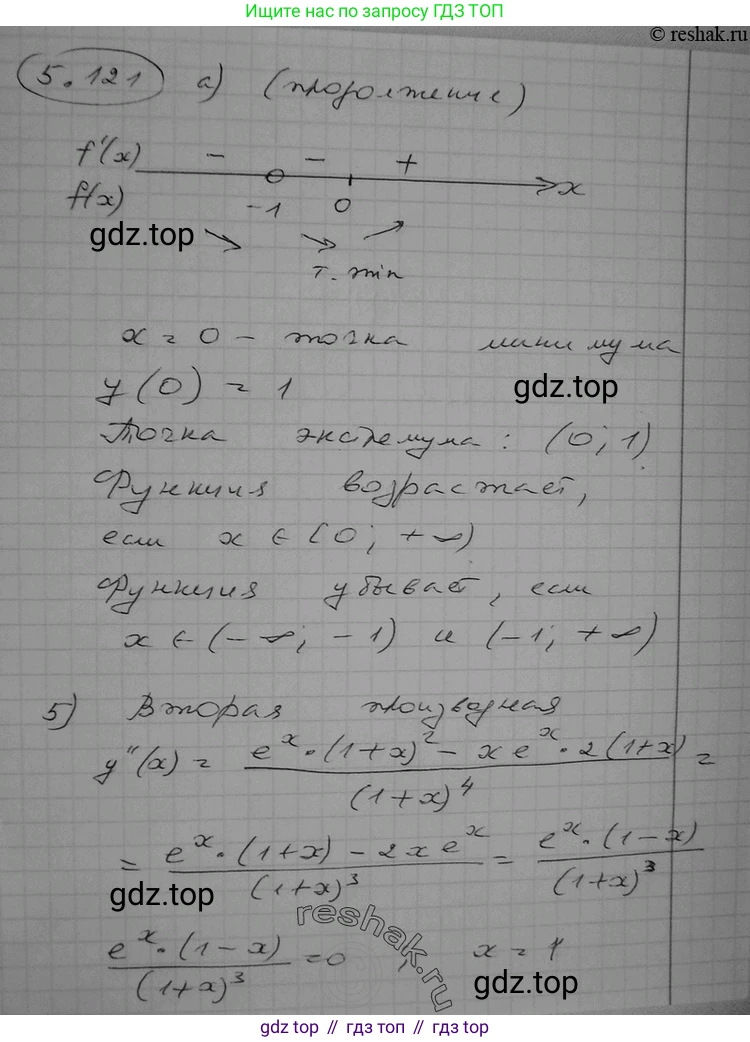 Ищите нас по запросу ГДЗ ТОП
© reshak.ru
5.121 а) (продолжение)
f'(x) − − + x
f(x) −1 0
gdz.top
т. min
x = 0 − точка минимума
y(0) = 1
gdz.top
Точка экстремума: (0; 1)
Функция возрастает,
если x ∈ (0; +∞)
Функция убывает, если
x ∈ (−∞; −1) и (−1; +∞)
5) Вторая производная
y''(x) = (e^x·(1+x)^2 − xe^x·2(1+x))/(1+x)^4 =
= (e^x·(1+x) − 2xe^x)/(1+x)^3 = (e^x·(1−x))/(1+x)^3
gdz.top
reshak.ru
(e^x·(1−x))/(1+x)^3 = 0, x = 1
gdz.top
gdz top // гдз топ // gdz top